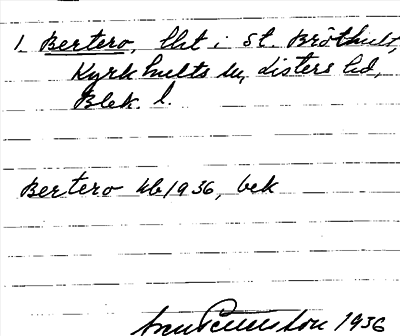 1 Bertero, lht i St. Bröthult,
Kyrkhults sn, Listers hd,
Blek. l.
Bertero db 1936, bek
1936